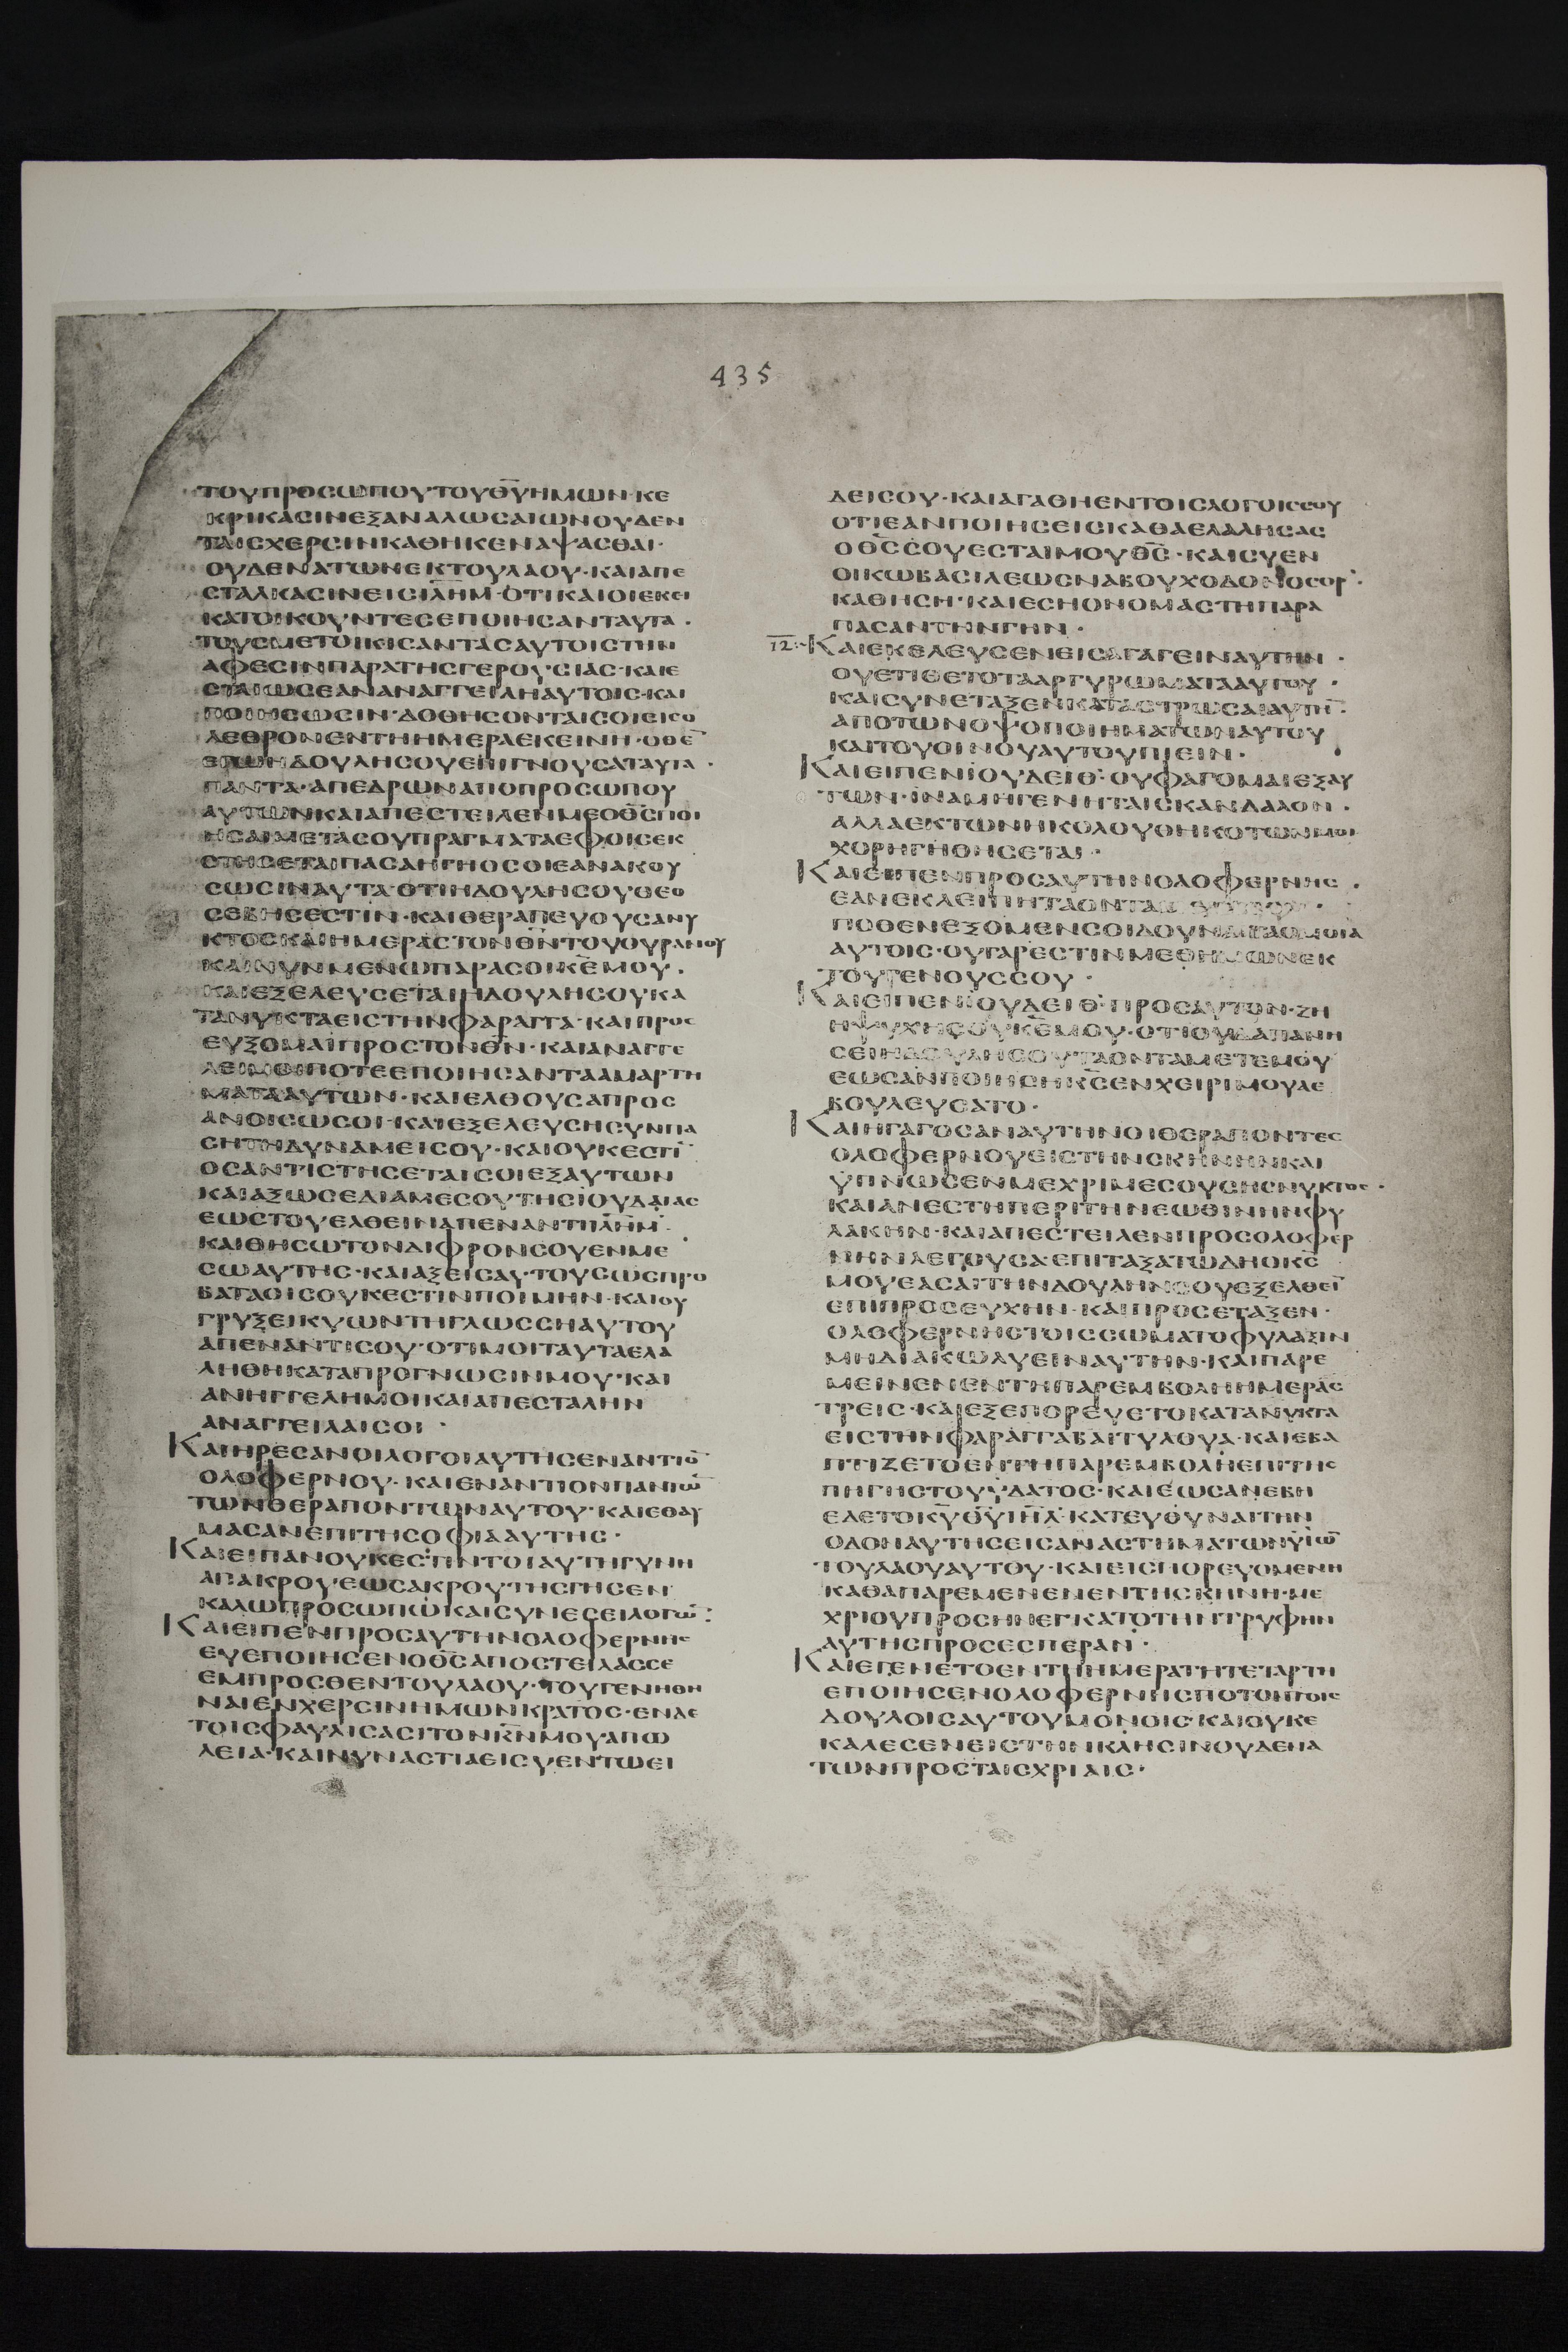 435
ΤΟΥΠΡΟCΩΠΟΥΤΟΥΘ̅Υ̅ΗΜΩΝ·ΚΕ
ΚΡΙΚΑCΙΝΕΞΑΝΑΛΩCΑΙΩΝΟΥΔΕΝ
ΤΑΙCΧΕΡCΙΝΚΑΘΗΚΕΝΑΨΑCΘΑΙ·
ΟΥΔΕΝΑΤΩΝΕΚΤΟΥΛΑΟΥ·ΚΑΙΑΠΕ
CΤΑΛΚΑCΙΝΕΙCΙ̅Λ̅Η̅Μ̅·ΟΤΙΚΑΙΟΙΕΚΕΙ
ΚΑΤΟΙΚΟΥΝΤΕCΕΠΟΙΗCΑΝΤΑΥΤΑ·
ΤΟΥCΜΕΤΟΙΚΙCΑΝΤΑCΑΥΤΟΙCΤΗΝ
ΑΦΕCΙΝΠΑΡΑΤΗCΓΕΡΟΥCΙΑC·ΚΑΙΕ
CΤΑΙΩCΕΑΝΑΝΑΓΓΕΙΛΗΑΥΤΟΙC·ΚΑΙ
ΠΟΙΗCΩCΙΝ·ΔΟΘΗCΟΝΤΑΙCΟΙΕΙCΟ
ΛΕΘΡΟΝΕΝΤΗΗΜΕΡΑΕΚΕΙΝΗ·ΟΘΕ̅
ΕΓΩΗΔΟΥΛΗCΟΥΕΠΙΓΝΟΥCΑΤΑΥΤΑ·
ΠΑΝΤΑ·ΑΠΕΔΡΩΝΑΠΟΠΡΟCΩΠΟΥ
ΑΥΤΩΝΚΑΙΑΠΕCΤΕΙΛΕΝΜΕΟΘ̅C̅ΠΟΙ
ΗCΑΙΜΕΤΑCΟΥΠΡΑΓΜΑΤΑΕΦΟΙCΕΚ
CΤΗCΕΤΑΙΠΑCΑΗΓΗΟCΟΙΕΑΝΑΚΟΥ
CΩCΙΝΑΥΤΑ·ΟΤΙΗΔΟΥΛΗCΟΥΘΕΟ
CΕΒΗCΕCΤΙΝ·ΚΑΙΘΕΡΑΠΕΥΟΥCΑΝΥ
ΚΤΟCΚΑΙΗΜΕΡΑCΤΟΝΘ̅Ν̅ΤΟΥΟΥΡΑΝΟΥ
ΚΑΙΝΥΝΜΕΝΩΠΑΡΑCΟΙΚ̅Ε̅ΜΟΥ·
ΚΑΙΕΞΕΛΕΥCΕΤΑΙΗΔΟΥΛΗCΟΥΚΑ
ΤΑΝΥΚΤΑΕΙCΤΗΝΦΑΡΑΓΓΑ·ΚΑΙΠΡΟC
ΕΥΞΟΜΑΙΠΡΟCΤΟΝΘ̅Ν̅·ΚΑΙΑΝΑΓΓΕ
ΛΕΙΜΟΙΠΟΤΕΕΠΟΙΗCΑΝΤΑΑΜΑΡΤΗ
ΜΑΤΑΑΥΤΩΝ·ΚΑΙΕΛΘΟΥCΑΠΡΟC
ΑΝΟΙCΩCΟΙ·ΚΑΙΕΞΕΛΕΥCΗCΥΝΠΑ
CΗΤΗΔΥΝΑΜΕΙCΟΥ·ΚΑΙΟΥΚΕCΤΙ̅
ΟCΑΝΤΙCΤΗCΕΤΑΙCΟΙΕΞΑΥΤΩΝ
ΚΑΙΑΞΩCΕΔΙΑΜΕCΟΥΤΗCΙΟΥΔΑΙΑC
ΕΩCΤΟΥΕΛΘΕΙΝΑΠΕΝΑΝΤΙΙ̅Λ̅Η̅Μ̅·
ΚΑΙΘΗCΩΤΟΝΔΙΦΡΟΝCΟΥΕΝΜΕ
CΩΑΥΤΗC·ΚΑΙΑΞΕΙCΑΥΤΟΥCΩCΠΡΟ
ΒΑΤΑΟΙCΟΥΚΕCΤΙΝΠΟΙΜΗΝ·ΚΑΙΟΥ
ΓΡΥΞΕΙΚΥΩΝΤΗΓΛΩCCΗΑΥΤΟΥ
ΑΠΕΝΑΝΤΙCΟΥ·ΟΤΙΜΟΙΤΑΥΤΑΕΛΑ
ΛΗΘΗΚΑΤΑΠΡΟΓΝΩCΙΝΜΟΥ·ΚΑΙ
ΑΝΗΓΓΕΛΗΜΟΙΚΑΙΑΠΕCΤΑΛΗΝ
ΑΝΑΓΓΕΙΛΑΙCΟΙ·
ΚΑΙΗΡΕCΑΝΟΙΛΟΓΟΙΑΥΤΗCΕΝΑΝΤΙΟ̅
ΟΛΟΦΕΡΝΟΥ·ΚΑΙΕΝΑΝΤΙΟΝΠΑΝΤΩ̅
ΤΩΝΘΕΡΑΠΟΝΤΩΝΑΥΤΟΥ·ΚΑΙΕΘΑΥ
ΜΑCΑΝΕΠΙΤΗCΟΦΙΑΑΥΤΗC·
ΚΑΙΕΙΠΑΝΟΥΚΕCΤΙΝΤΟΙΑΥΤΗΓΥΝΗ
ΑΠΑΚΡΟΥΕΩCΑΚΡΟΥΤΗCΓΗCΕΝ
ΚΑΛΩΠΡΟCΩΠΩΚΑΙCΥΝΕCΕΙΛΟΓΩ̅:
ΚΑΙΕΙΠΕΝΠΡΟCΑΥΤΗΝΟΛΟΦΕΡΝΗC
ΕΥΕΠΟΙΗCΕΝΟΘ̅C̅ΑΠΟCΤΕΙΛΑCCΕ
ΕΜΠΡΟCΘΕΝΤΟΥΛΑΟΥ·ΤΟΥΓΕΝΗΘΗ
ΝΑΙΕΝΧΕΡCΙΝΗΜΩΝΚΡΑΤΟC·ΕΝΔΕ
ΤΟΙCΦΑΥΛΙCΑCΙΤΟΝΚ̅Ν̅ΜΟΥΑΠΩ
ΛΕΙΑ·ΚΑΙΝΥΝΑCΤΙΑΕΙCΥΕΝΤΩΕΙ
ΔΕΙCΟΥ·ΚΑΙΑΓΑΘΗΕΝΤΟΙCΛΟΓΟΙCCΟΥ
ΟΤΙΕΑΝΠΟΙΗCΕΙCΚΑΘΑΕΛΑΛΗCΑC
ΟΘ̅C̅CΟΥΕCΤΑΙΜΟΥΘ̅C̅·ΚΑΙCΥΕΝ
ΟΙΚΩΒΑCΙΛΕΩCΝΑΒΟΥΧΟΔΟΝΟCΟΡ·
ΚΑΘΗCΗ·ΚΑΙΕCΗΟΝΟΜΑCΤΗΠΑΡΑ
ΠΑCΑΝΤΗΝΓΗΝ·
12. ΚΑΙΕΚΕΛΕΥCΕΝΕΙCΑΓΑΓΕΙΝΑΥΤΗΝ·
ΟΥΕΤΙΘΕΤΟΤΑΑΡΓΥΡΩΜΑΤΑΑΥΤΟΥ·
ΚΑΙCΥΝΕΤΑΞΕΝΚΑΤΑCΤΡΩCΑΙΑΥΤΗ·
ΑΠΟΤΩΝΟΨΟΠΟΙΗΜΑΤΩΝΑΥΤΟΥ
ΚΑΙΤΟΥΟΙΝΟΥΑΥΤΟΥΠΙΕΙΝ·
ΚΑΙΕΙΠΕΝΙΟΥΔΕΙΘ·ΟΥΦΑΓΟΜΑΙΕΞΑΥ
ΤΩΝ·ΙΝΑΜΗΓΕΝΗΤΑΙCΚΑΝΔΑΛΟΝ·
ΑΛΛΑΕΚΤΩΝΗΚΟΛΟΥΘΗΚΟΤΩΝΜΟΙ
ΧΟΡΗΓΗΘΗCΕΤΑΙ·
ΚΑΙΕΙΠΕΝΠΡΟCΑΥΤΗΝΟΛΟΦΕΡΝΗC·
ΕΑΝΕΚΛΕΙΠΗΤΑΟΝΤΑ
ΠΟΘΕΝΕΞΟΜΕΝCΟΙΔΟΥΝΑΙΤΑΟΜΟΙΑ
ΑΥΤΟΙC·ΟΥΓΑΡΕCΤΙΝΜΕΘΗΜΩΝΕΚ
ΤΟΥΓΕΝΟΥCCΟΥ·
ΚΑΙΕΙΠΕΝΙΟΥΔΕΙΘ·ΠΡΟCΑΥΤΟΝ·ΖΗ
ΗΨΥΧΗCΟΥΚ̅Ε̅ΜΟΥ·ΟΤΙΟΥΔΑΠΑΝΗ
CΕΙΗΔΟΥΛΗCΟΥΤΑΟΝΤΑΜΕΤΕΜΟΥ
ΕΩCΑΝΠΟΙΗCΗΚ̅C̅ΕΝΧΕΙΡΙΜΟΥΑΕ
ΒΟΥΛΕΥCΑΤΟ·
ΚΑΙΗΓΑΓΟCΑΝΑΥΤΗΝΟΙΘΕΡΑΠΟΝΤΕC
ΟΛΟΦΕΡΝΟΥΕΙCΤΗΝCΚΗΝΗΝΚΑΙ
ΫΠΝΩCΕΝΜΕΧΡΙΜΕCΟΥCΗCΝΥΚΤΟC·
ΚΑΙΑΝΕCΤΗΠΕΡΙΤΗΝΕΩΘΙΝΗΝΦΥ
ΛΑΚΗΝ·ΚΑΙΑΠΕCΤΕΙΛΕΝΠΡΟCΟΛΟΦΕΡ
ΝΗΝΛΕΓΟΥCΑ·ΕΠΙΤΑΞΑΤΩΔΗΟΚ̅C̅
ΜΟΥΕΑCΑΙΤΗΝΔΟΥΛΗΝCΟΥΕΞΕΛΘΕΙ̅
ΕΠΙΠΡΟCΕΥΧΗΝ·ΚΑΙΠΡΟCΕΤΑΞΕΝ·
ΟΛΟΦΕΡΝΗCΤΟΙCCΩΜΑΤΟΦΥΛΑΞΙΝ
ΜΗΔΙΑΚΩΛΥΕΙΝΑΥΤΗΝ·ΚΑΙΠΑΡΕ
ΜΕΙΝΕΝΕΝΤΗΠΑΡΕΜΒΟΛΗΗΜΕΡΑC
ΤΡΕΙC·ΚΑΙΕΞΕΠΟΡΕΥΕΤΟΚΑΤΑΝΥΚΤΑ
ΕΙCΤΗΝΦΑΡΑΓΓΑΒΑΙΤΥΛΟΥΑ·ΚΑΙΕΒΑ
ΠΤΙΖΕΤΟΕΝΤΗΠΑΡΕΜΒΟΛΗΕΠΙΤΗC
ΠΗΓΗCΤΟΥΫΔΑΤΟC·ΚΑΙΕΩCΑΝΕΒΗ
ΕΔΕΤΟΚ̅Υ̅Θ̅Υ̅Ι̅Η̅Λ̅·ΚΑΤΕΥΘΥΝΑΙΤΗΝ
ΟΔΟΝΑΥΤΗCΕΙCΑΝΑCΤΗΜΑΤΩΝΫΙΩ̅
ΤΟΥΛΑΟΥΑΥΤΟΥ·ΚΑΙΕΙCΠΟΡΕΥΟΜΕΝΗ
ΚΑΘΑΠΑΡΕΜΕΝΕΝΕΝΤΗCΚΗΝΗ·ΜΕ
ΧΡΙΟΥΠΡΟCΗΝΕΓΚΑΤΟΤΗΝΤΡΥΦΗΝ
ΑΥΤΗCΠΡΟCΕCΠΕΡΑΝ·
ΚΑΙΕΓΕΝΕΤΟΕΝΤΗΗΜΕΡΑΤΗΤΕΤΑΡΤΗ
ΕΠΟΙΗCΕΝΟΛΟΦΕΡΝΗCΠΟΤΟΝΤΟΙC
ΔΟΥΛΟΙCΑΥΤΟΥΜΟΝΟΙC·ΚΑΙΟΥΚΕ
ΚΑΛΕCΕΝΕΙCΤΗΝΚΛΗCΙΝΟΥΔΕΝΑ
ΤΩΝΠΡΟCΤΑΙCΧΡΙΑΙC·